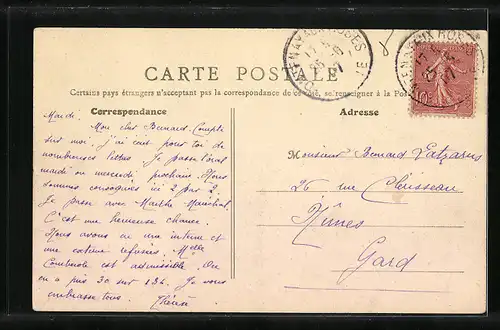 FONTENAY AUX ROSES
FONTENAY AUX ROSES
CARTE POSTALE
Certains pays étrangers n'acceptant pas la correspondance de ce côté, se renseigner à la Poste
Correspondance
Adresse
Mardi.
Mon cher Bernard. Compte
sur moi. j'ai fait pour toi de
nombreuses lettres. Je passe l'oral
mardi ou mercredi prochain. Nous
sommes convoquées ici 2 par 2.
Je passe avec Marthe
C'est une heureuse chance.
Nous avons eu une interne et
une externe refusées. Melle
est admissible. On
en a pris 30 sur 134. Je vous
embrasse tous. Thérèse
Monsieur Bernard Latzarus
26 rue Clérisseau
Nîmes
Gard